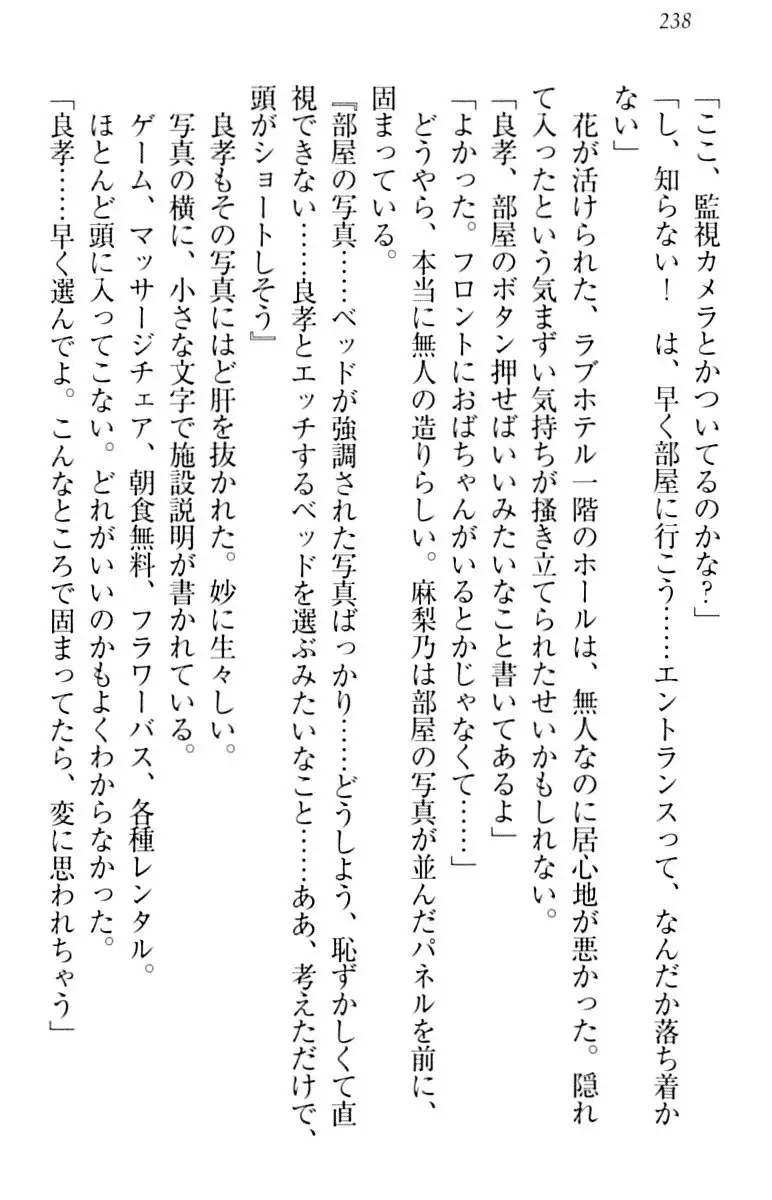 238
「ここ、監視カメラとかついてるのかな?」
「し、知らない!　は、早く部屋に行こう……エントランスって、なんだか落ち着か
ない」
　花が活けられた、ラブホテル一階のホールは、無人なのに居心地が悪かった。隠れ
て入ったという気まずい気持ちが掻き立てられたせいかもしれない。
「良孝、部屋のボタン押せばいいみたいなこと書いてあるよ」
「よかった。フロントにおばちゃんがいるとかじゃなくて……」
　どうやら、本当に無人の造りらしい。麻梨乃は部屋の写真が並んだパネルを前に、
固まっている。
『部屋の写真……ベッドが強調された写真ばっかり……どうしよう、恥ずかしくて直
視できない……良孝とエッチするベッドを選ぶみたいなこと……ああ、考えただけで、
頭がショートしそう』
　良孝もその写真にはど肝を抜かれた。妙に生々しい。
　写真の横に、小さな文字で施設説明が書かれている。
　ゲーム、マッサージチェア、朝食無料、フラワーバス、各種レンタル。
　ほとんど頭に入ってこない。どれがいいのかもよくわからなかった。
「良孝……早く選んでよ。こんなところで固まってたら、変に思われちゃう」